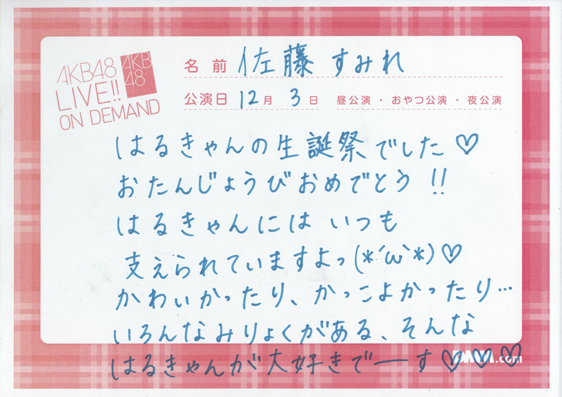 AKB48
LIVE!!
ON DEMAND
AKB
48
名前 佐藤 すみれ
公演日 12月 3日 昼公演・おやつ公演・夜公演
はるきゃんの生誕祭でした♡
おたんじょうびおめでとう!!
はるきゃんには いつも
支えられていますよっ(*´ω`*)♡
かわいかったり、かっこよかったり…
いろんなみりょくがある、そんな
はるきゃんが大好きでーす♡♡♡
.com